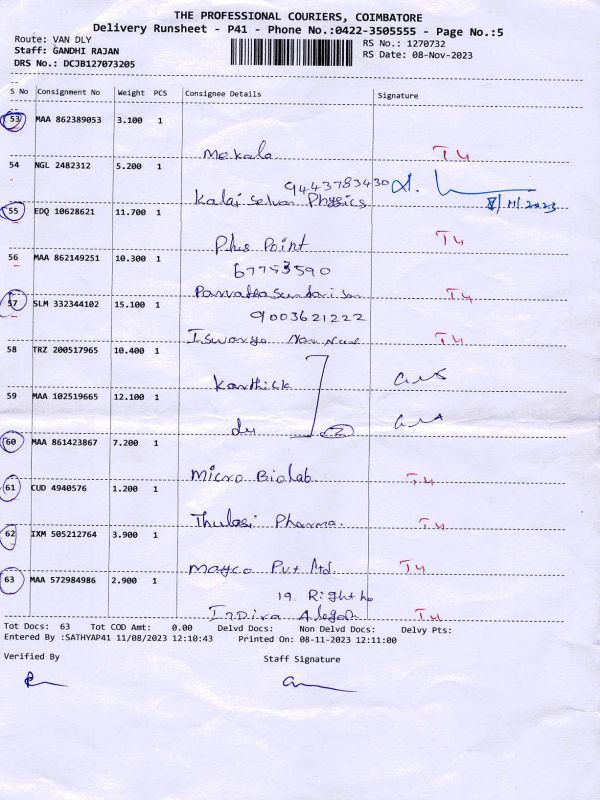 THE PROFESSIONAL COURIERS, COIMBATORE
Delivery Runsheet - P41 - Phone No.:0422-3505555 - Page No.:5
Route: VAN DLY RS No.: 1270732
Staff: GANDHI RAJAN RS Date: 08-Nov-2023
DRS No.: DCJB127073205
S No Consignment No Weight PCS Consignee Details Signature
53 MAA 862389053 3.100 1
Mekala T4
54 NGL 2482312 5.200 1
9443783430
Kalai Selvan Physics 8/11/2023
55 EDQ 10628621 11.700 1
Plus Point T4
56 MAA 862149251 10.300 1
67753590
T4
57 SLM 332344102 15.100 1
9003621222
T4
58 TRZ 200517965 10.400 1
Karthick
59 MAA 102519665 12.100 1
du
60 MAA 861423867 7.200 1
Micro Biolab T4
61 CUD 4940576 1.200 1
Thulasi Pharma. T4
62 IXM 505212764 3.900 1
Mayco Pvt Ltd. T4
63 MAA 572984986 2.900 1
19
Indira T4
Tot Docs: 63 Tot COD Amt: 0.00 Delvd Docs: Non Delvd Docs: Delvy Pts:
Entered By :SATHYAP41 11/08/2023 12:10:43 Printed On: 08-11-2023 12:11:00
Verified By Staff Signature